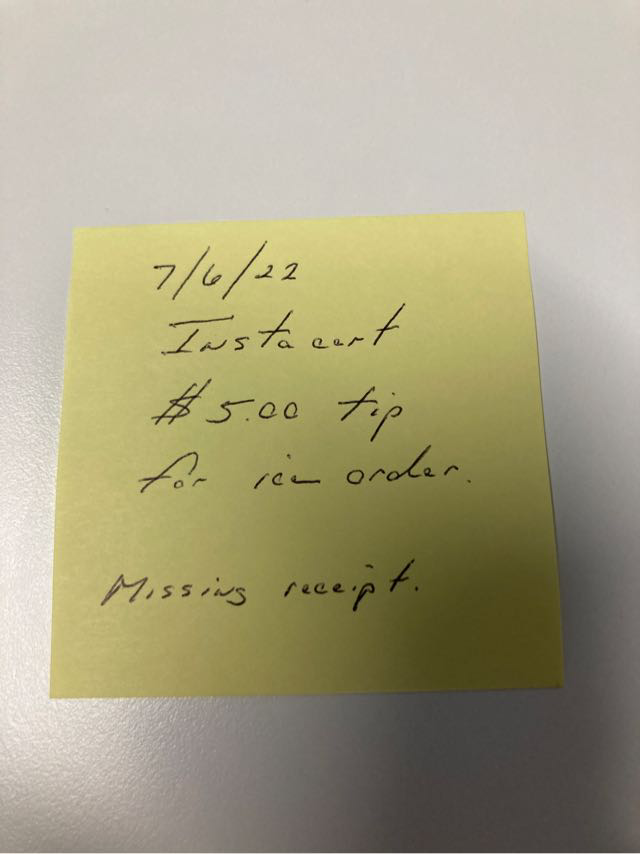 7/6/22
Instacart
$5.00 tip
for ice order.
Missing receipt.